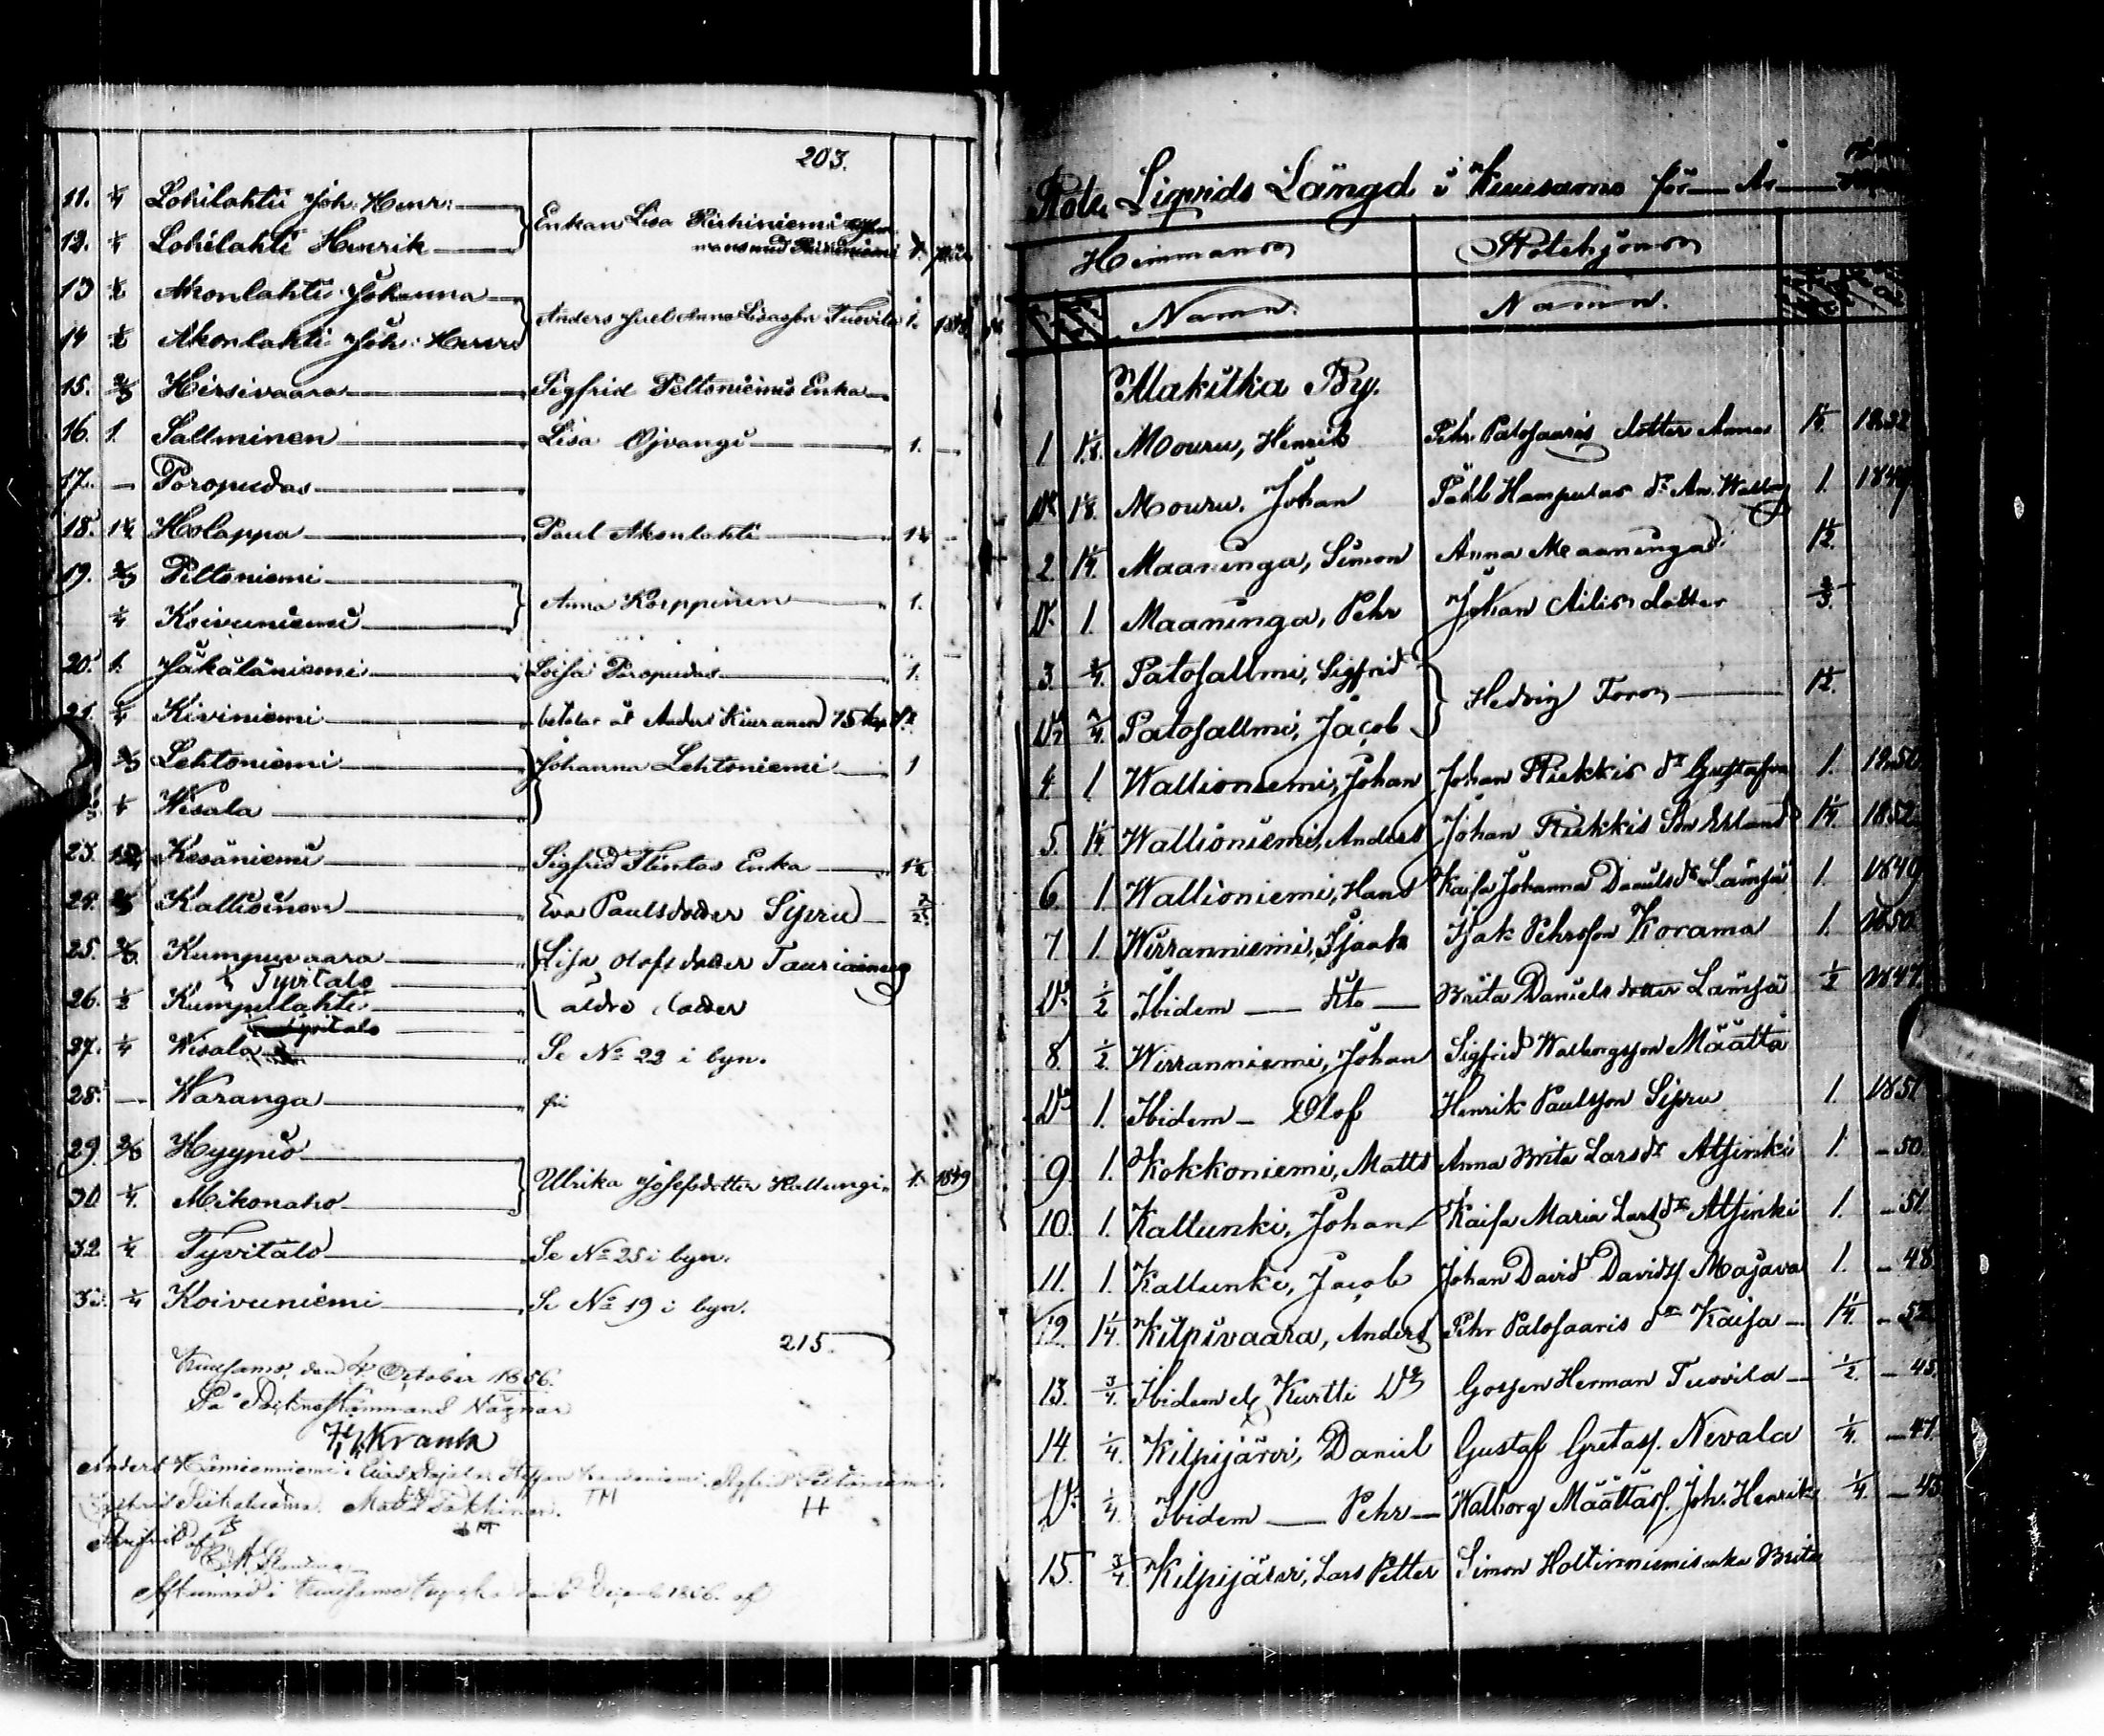 203.
11. 1/4 Lohilahti Joh: Henr:
Enkan Lisa Kirkiniemi
12. 1/4 Lohilahti Henrik 1.
13 1/2 Akonlahti Johanna
Anders Juel Anna Lisasson Tuovila 1.
14 1/2 Akonlahti Joh: Henr:
15. 2/3 Hirsivaara Sigfrid Peltoniemis Enka
16. 1. Sallminen Lisa Ojvangi 1.
17. — Poropudas
18. 1 1/4 Holappa Paul Akonlahti 1 1/4
19. 2/3 Peltoniemi
Anna Korppinen 1.
1/4 Koivuniemi
20. 1. Jäkäläniemi Loisa Poropudas 1.
21. 1/4 Kiviniemi betalar åt Anders Kiuranen 75 kop
2/3 Lehtoniemi Johanna Lehtoniemi 1
1/4 Wisala
23. Kesäniemi Sigfrid Flintas Enka 1 1/4
24. 2/3 Kallioinen Eva Paulsdotter Sipru
25. 2/3 Kumpuvaara Lisa Olofsdotter Tauriainens
Tyvitalo
26. 1/2 Kumpulahti äldre dotter
27. 1/4 Wisala Se No 22 i byn.
28. — Karanga fri
29. 2/3 Hyypiö
Ulrika Josefsdotter Kallungi 1. 1849
30 1/4. Mikonaho
32. 1/4 Tyvitalo Se No 25 i byn.
33. 1/4 Koivuniemi Se No 19 i byn.
215.
Kuusamo, den 4 October 1856.
På Sockne Stämmans Vägnar
H. Krank
TM H
Rote Liqvids Längd i Kuusamo för — År —
Hemmanen Rotehjonen
Namn. Namn.
Makitka By.
1 1 1/8. Mouru, Henrik Pehr Patosaaris dotter Anna
Do 1 1/8. Mouru, Johan Påhl Hamputas dr An. Walb. 1. 1849
2. 1 1/4. Maaninga, Simon Anna Maaninga 1 1/2.
Do 1. Maaninga, Pehr Johan Ailis dotter 2/3
3. 3/4. Patosallmi, Sigfrid
Hedvig Toro 1 1/2.
Do 3/4. Patosallmi, Jacob
4 1. Wallioniemi, Johan Johan Riekkis dr Gustafva 1. 1850
5. 1 1/4. Wallioniemi, Anders Johan Riekkis Son Erland 1 1/4. 1852
6. 1. Wallioniemi, Hans Kaisa Johanna Danielsdr Lämsä 1. 1849
7 1. Wirranniemi, Isaak Isak Pehrsson Korama 1. 1850
Do 1/2 Ibidem — dito — Brita Daniels dotter Lämsä 1/2 1847.
8. 1/2. Wirranniemi, Johan Sigfrid Walborgsson Määttä
Do 1. Ibidem — Olof Henrik Paulsson Sipru 1. 1851
9. 1. Kokkoniemi, Matts Anna Brita Larsdr Altsinki 1. — 50.
10. 1. Kallunki, Johan Kaisa Maria Larsdr Altsinki 1. — 51
11. 1. Kallunki, Jacob Johan David Davids. Majava 1. — 48
12. 1 1/4 Kilpivaara, Anders Pehr Patosaaris dr Kaisa — 1 1/4. — 52
13. 3/4. Ibidem el. Kurtti Do Gossen Herman Tuovila — 1/2. — 45.
14. 1/4. Kilpijärvi, Daniel Gustaf Gretas. Nevala 1/4. — 47.
Do 1/4. Ibidem — Pehr — Walborg Määttäs. Joh: Henrik 1/4. — 45
15. 3/4. Kilpijärvi, Lars Petter Simon Holtinniemis enka Brita